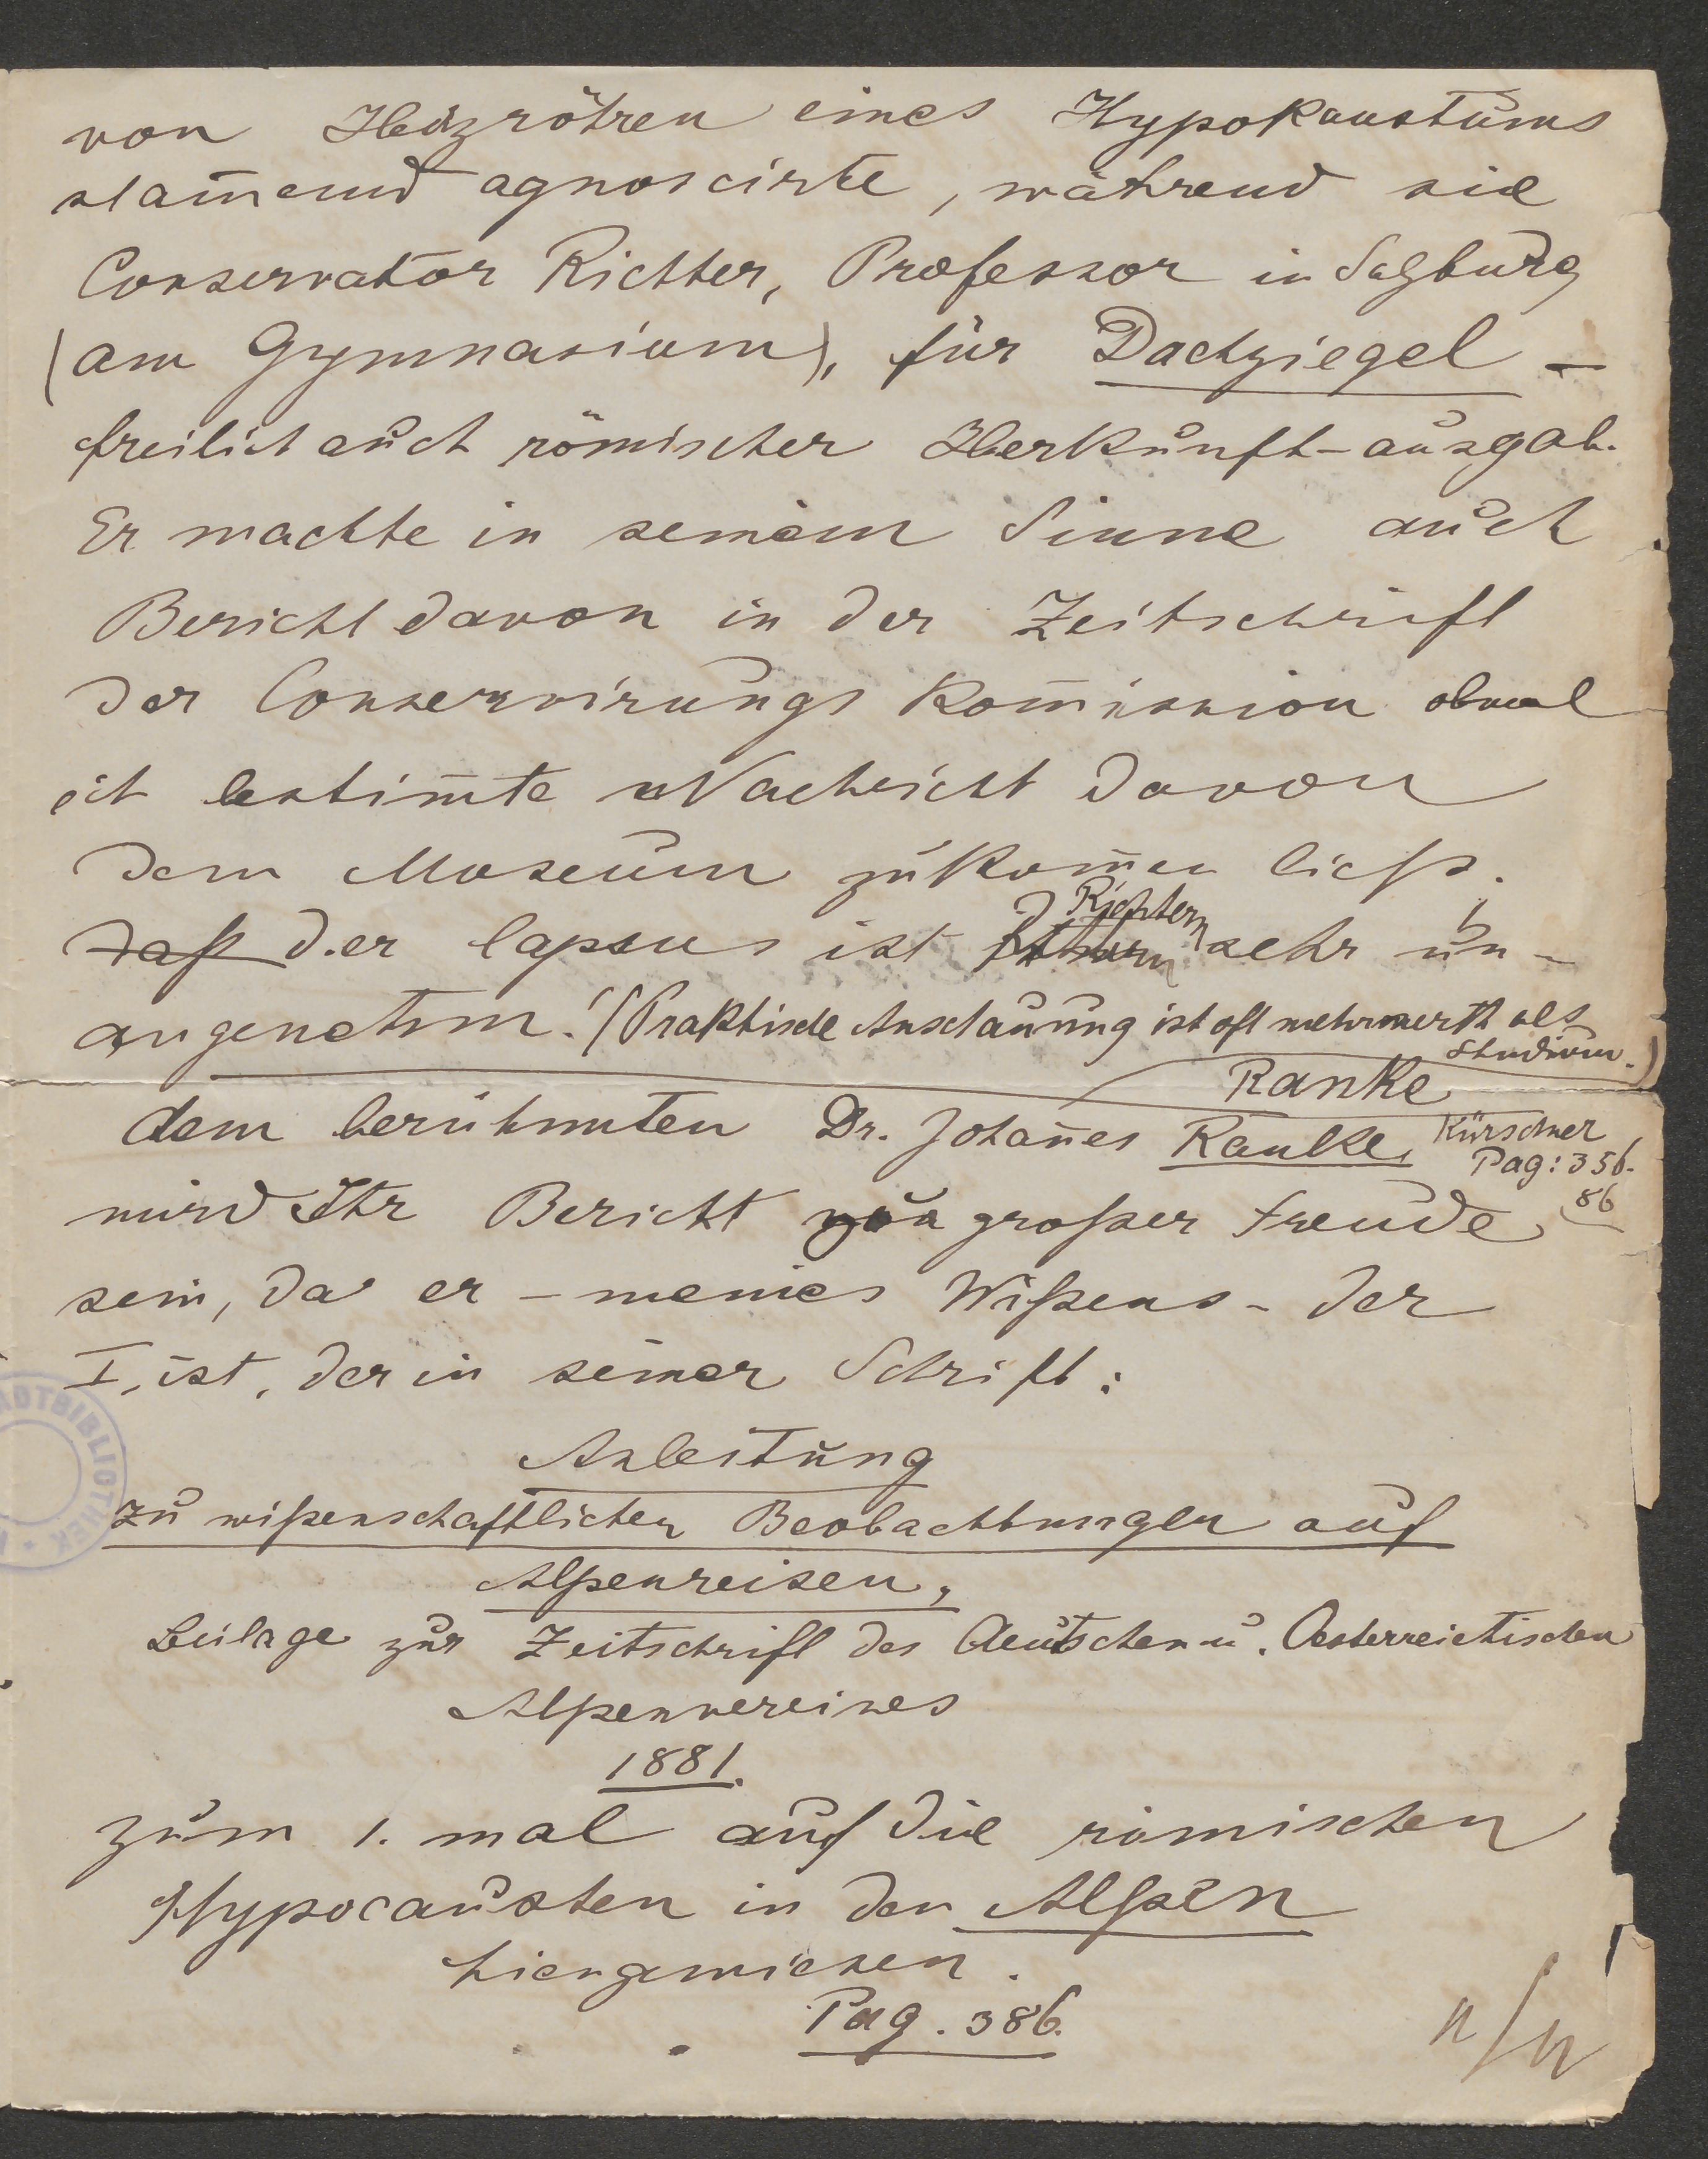 von Heizröhren eines Hypokaustums
stam̅end agnoscirte, während sie
Conservator Richter, Professor in Salzburg
(am Gymnasium), für Dachziegel –
freilich auch römischer Herkunft – ausgab.
Er machte in seinem Sinne auch
Bericht davon in der Zeitschrift
der Conservirungs Kom̅ission obwol
ich bestim̅te Nachricht davon
dem Museum zukom̅en ließ.
Daß der lapsus ist Richtern sehr un-
angenehm! (Praktische Anschauung ist oft mehr werth als
Studium.)
Ranke
dem berühmten Dr. Johan̅es Ranke, Kürschner
Pag: 356.
86
wird Ihr Bericht zu großer Freude
sein, da er – meines Wißens – der
I. ist, der in seiner Schrift:
Anleitung
zu wißenschaftlichen Beobachtungen auf
Alpenreisen,
Beilage zur Zeitschrift des Deutschen u. Oesterreichischen
Alpenvereines
1881.
zum 1. mal auf die römischen
Hypocausten in den Alpen
hingewiesen.
Pag. 386.
STADTBIBLIOTHEK